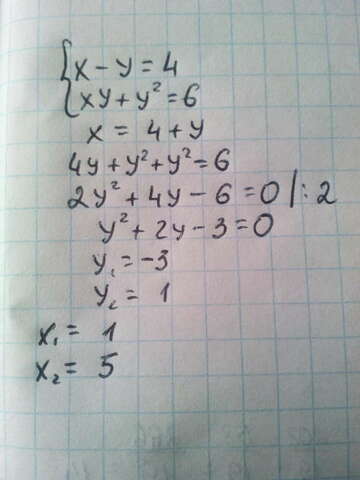 {x - y = 4
xy + y² = 6
x = 4 + y
4y + y² + y² = 6
2y² + 4y - 6 = 0 |: 2
y² + 2y - 3 = 0
y₁ = -3
y₂ = 1
x₁ = 1
x₂ = 5